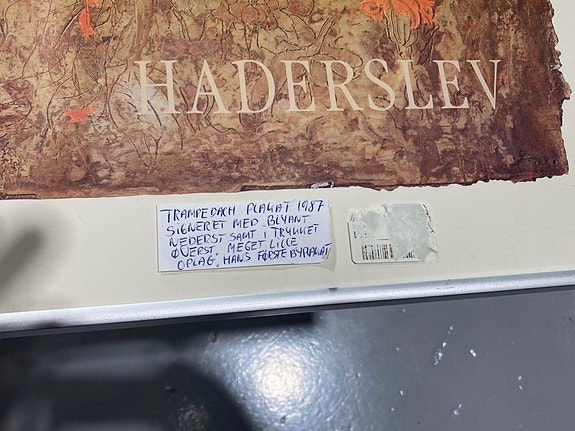 HADERSLEV
TRAMPEDACH PLAKAT 1987
SIGNERET MED BLYANT
NEDERST SAMT I TRYKKET
ØVERST. MEGET LILLE
OPLAG. HANS FØRSTE BYPLAKAT